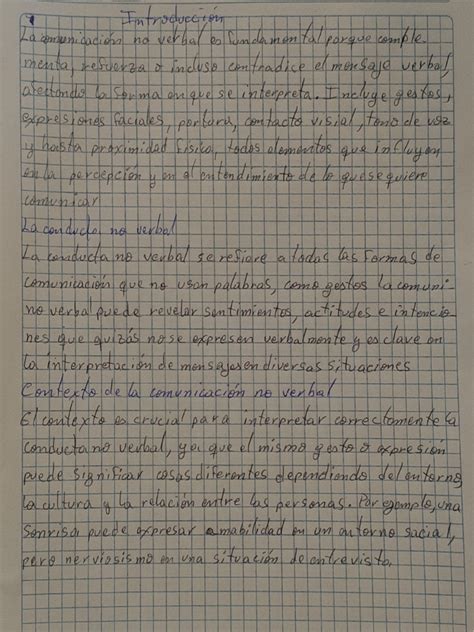 Introducción
La comunicación no verbal es fundamental porque comple-
menta, refuerza o incluso contradice el mensaje verbal,
afectando la forma en que se interpreta. Incluye gestos,
expresiones faciales, portura, contacto visial, tono de voz
y hasta proximidad física, todos elementos que influyen
en la percepción y en el entendimiento de lo que se quiere
comunicar
La conducta no verbal
La conducta no verbal se refiere a todas las formas de
comunicación que no usan palabras, como gestos la comuni-
no verbal puede revelar sentimientos, actitudes e intencio-
nes que quizás no se expresen verbalmente y es clave en
la interpretación de mensajes en diversas situaciones
Contexto de la comunicación no verbal
El contexto es crucial para interpretar correctamente la
conducta no verbal, ya que el mismo gesto o expresión
puede significar cosas diferentes dependiendo del entorno,
la cultura y la relación entre las personas. Por ejemplo, una
sonrisa puede expresar amabilidad en un entorno social,
pero nerviosismo en una situación de entrevista.